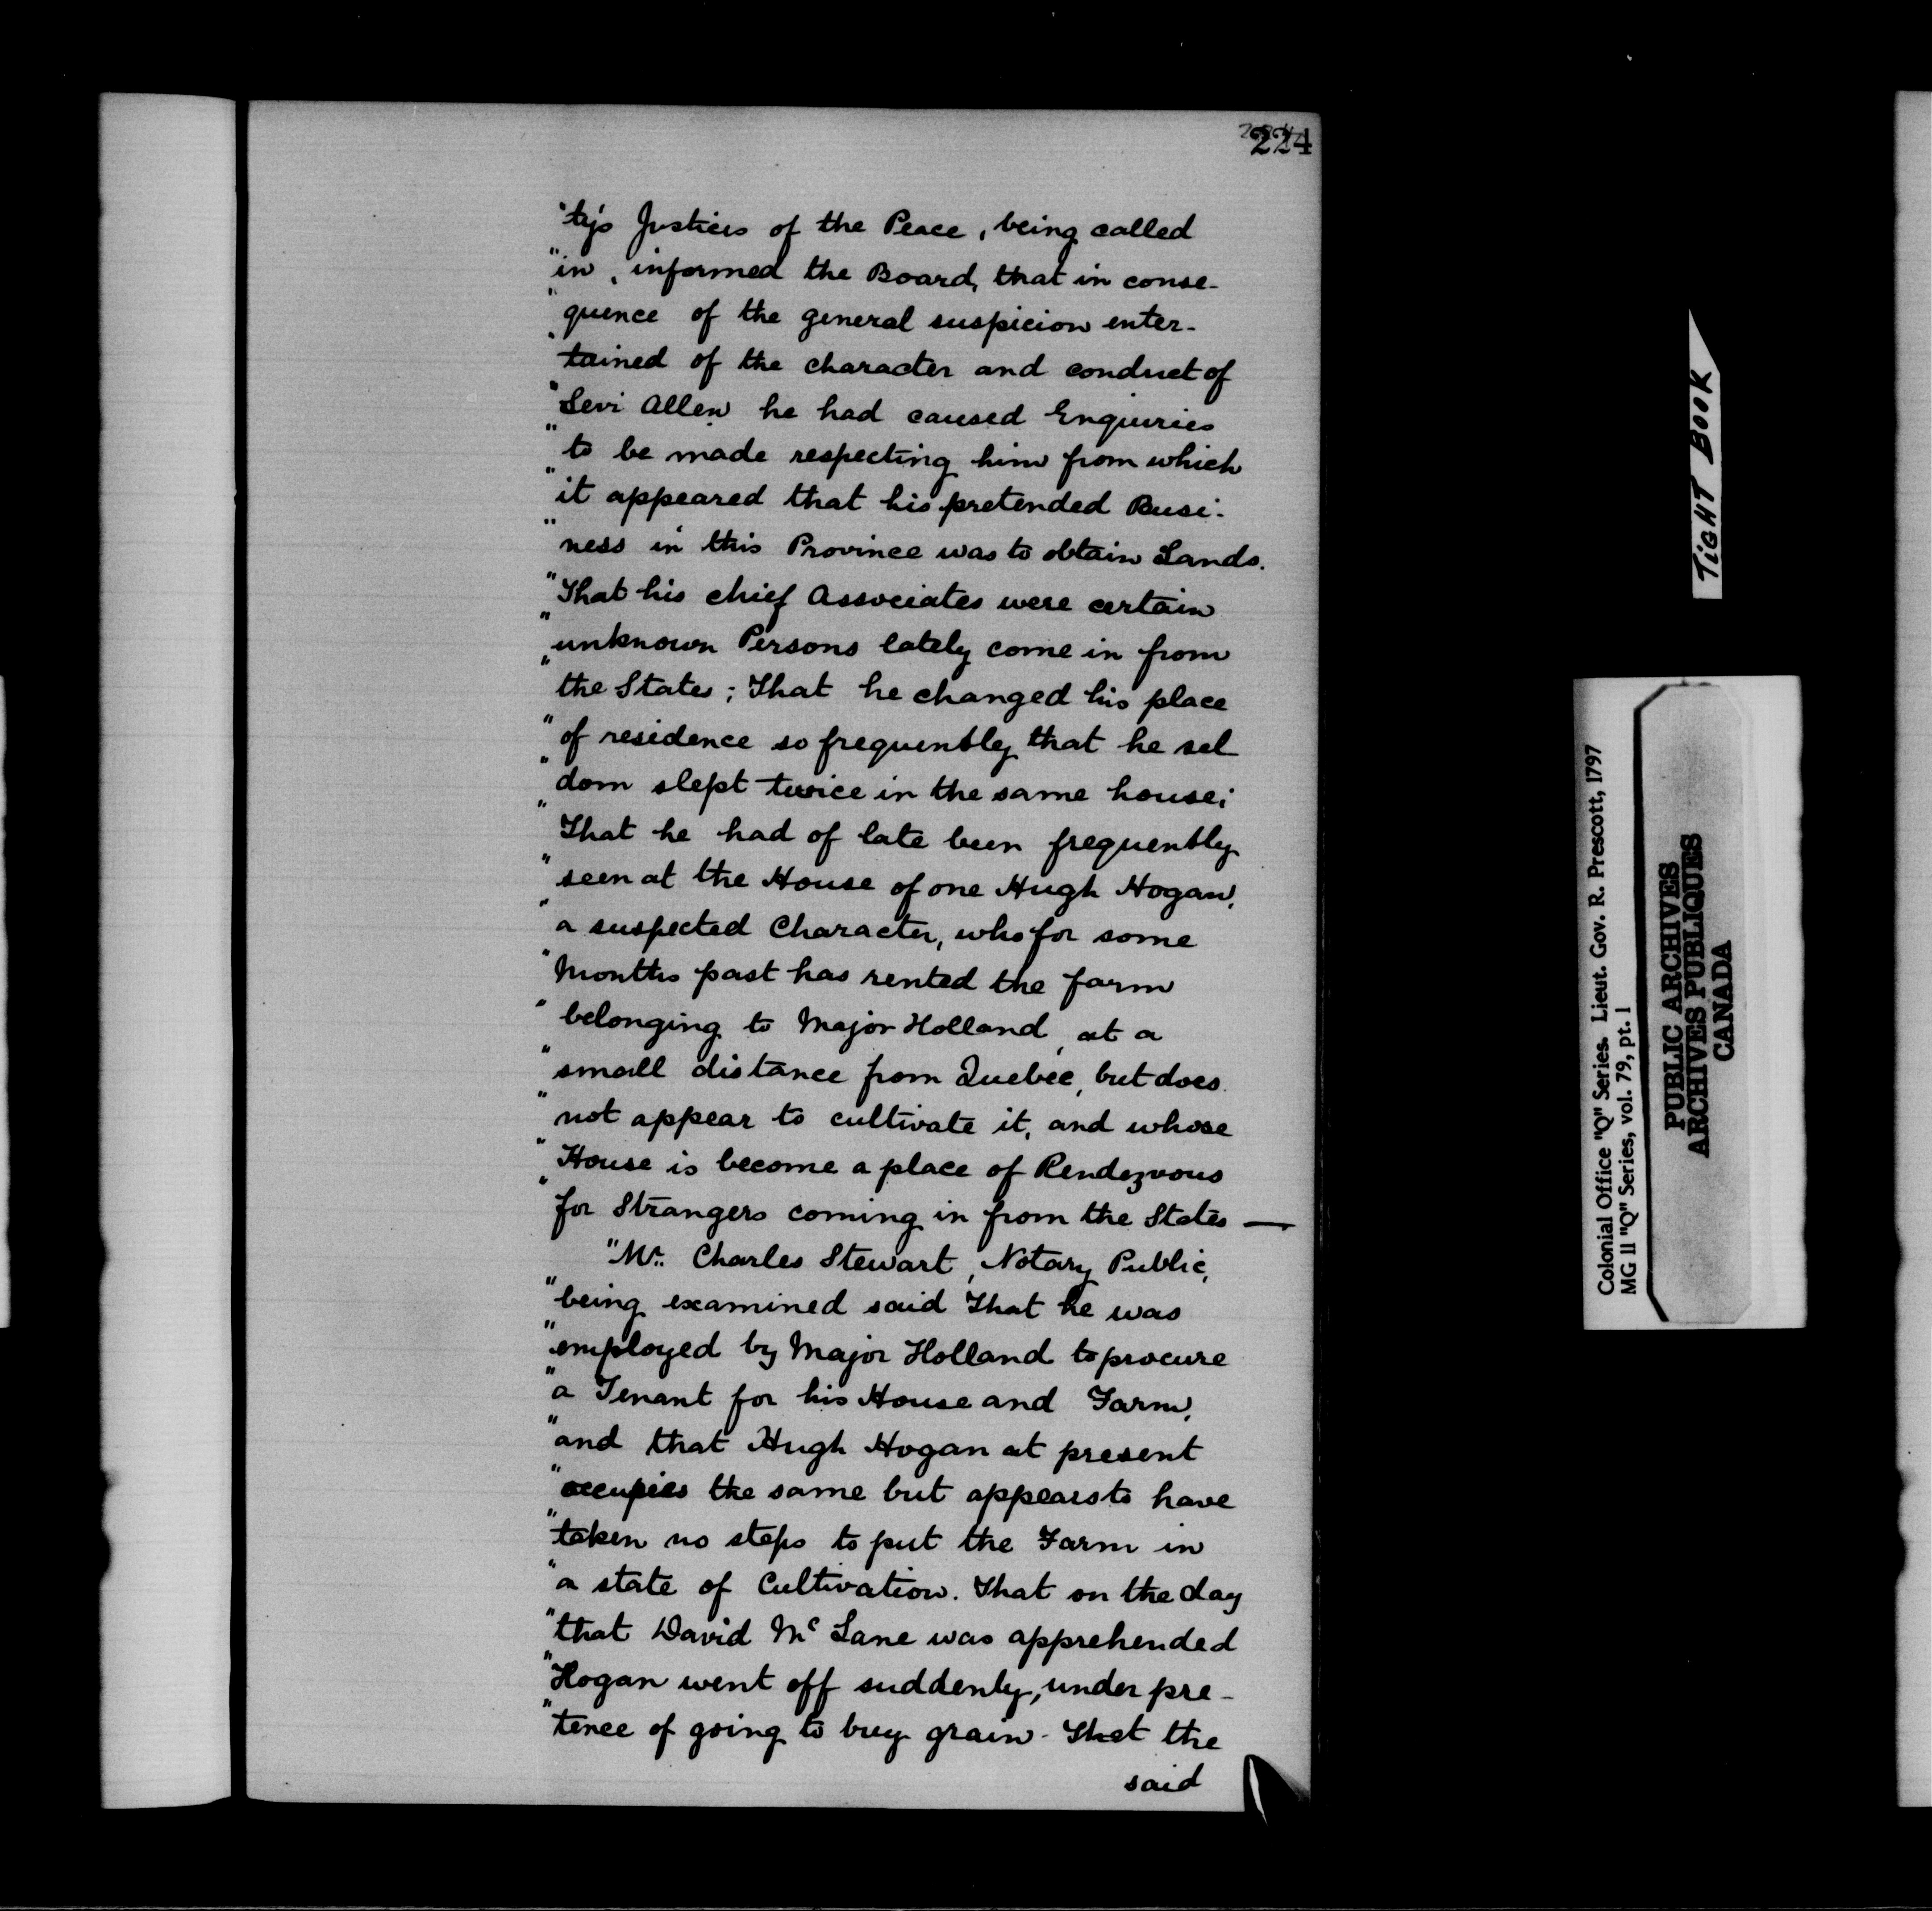 224
"ty's Justices of the Peace, being called
"in, informed the Board, that in conse-
"quence of the general suspicion enter-
"tained of the character and conduct of
"Levi Allen he had caused Enquiries
"to be made respecting him from which
"it appeared that his pretended Busi-
"ness in this Province was to obtain Lands.
"That his chief Associates were certain
"unknown Persons lately come in from
"the States; That he changed his place
"of residence so frequently that he sel
"dom slept twice in the same house;
"That he had of late been frequently
"seen at the House of one Hugh Hogan,
"a suspected Character, who for some
"Months past has rented the farm
"belonging to Major Holland, at a
"small distance from Quebec, but does
"not appear to cultivate it, and whose
"House is become a place of Rendezvous
"for Strangers coming in from the States —
"Mr. Charles Stewart, Notary Public,
"being examined said That he was
"employed by Major Holland to procure
"a Tenant for his House and Farm,
"and that Hugh Hogan at present
"occupies the same but appears to have
"taken no steps to put the Farm in
"a state of Cultivation. That on the day
"that David Mc Lane was apprehended
"Hogan went off suddenly, under pre-
"tence of going to buy grain - That the
said
TIGHT BOOK
Colonial Office "Q" Series. Lieut. Gov. R. Prescott, 1797
MG 11 "Q" Series, vol. 79, pt. 1
PUBLIC ARCHIVES
ARCHIVES PUBLIQUES
CANADA